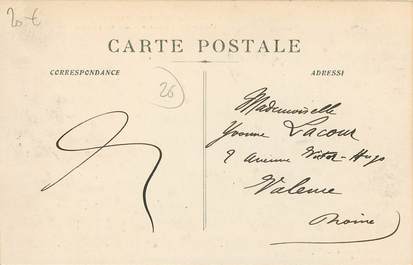 20 €
CARTE POSTALE
CORRESPONDANCE
ADRESSE
26
Mademoiselle
Yvonne Lacour
2 Avenue Victor-Hugo
Valence
Drome